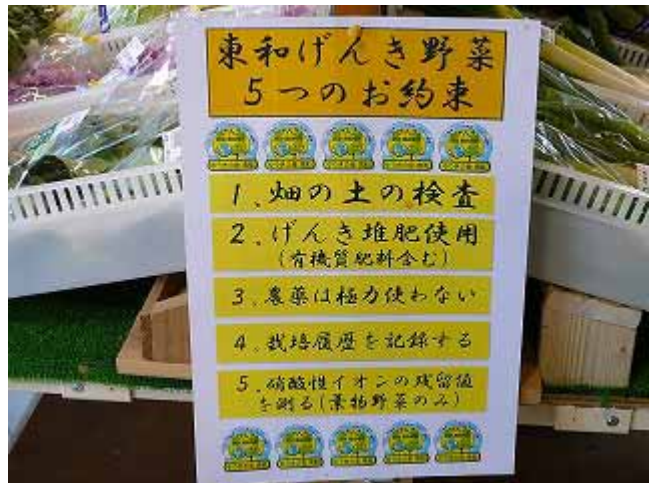 東和げんき野菜
5つのお約束
1、畑の土の検査
2、げんき堆肥使用
(有機質肥料含む)
3、農薬は極力使わない
4、栽培履歴を記録する
5、硝酸性イオンの残留値
を測る(葉物野菜のみ)